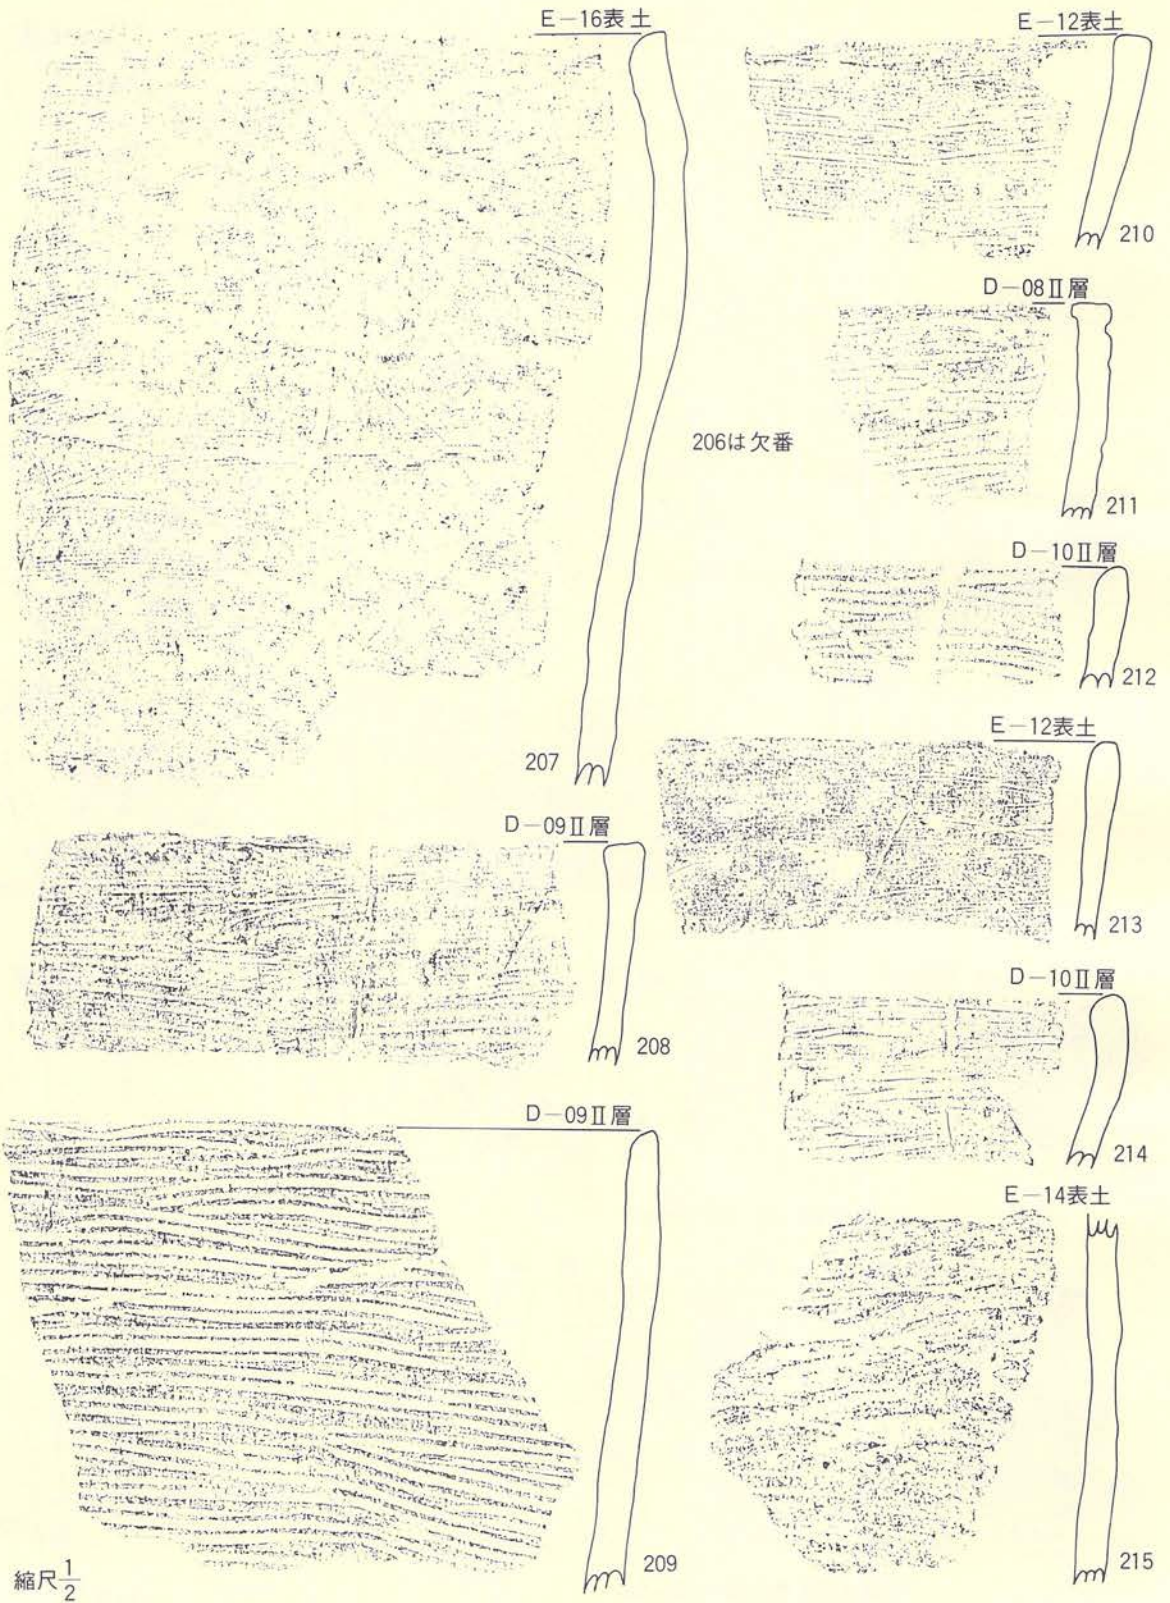 E－16表土
207
D－09Ⅱ層
208
D－09Ⅱ層
209
縮尺1/2
206は欠番
E－12表土
210
D－08Ⅱ層
211
D－10Ⅱ層
212
E－12表土
213
D－10Ⅱ層
214
E－14表土
215